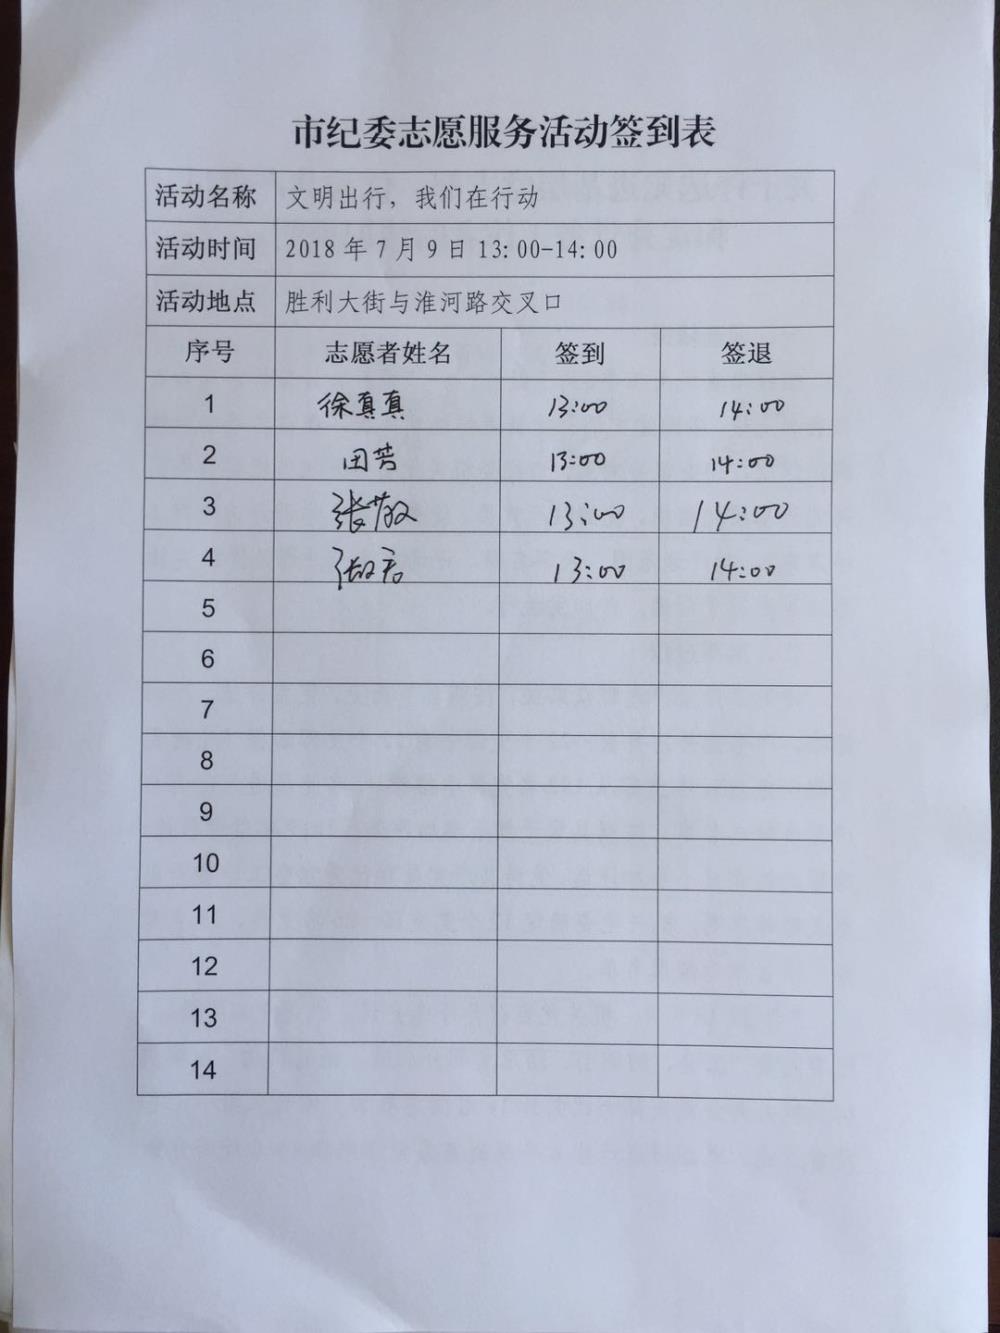 市纪委志愿服务活动签到表
活动名称 文明出行，我们在行动
活动时间 2018年7月9日13:00-14:00
活动地点 胜利大街与淮河路交叉口
序号 志愿者姓名 签到 签退
1 徐真真 13:00 14:00
2 田芳 13:00 14:00
3 张敬 13:00 14:00
4 张君 13:00 14:00
5
6
7
8
9
10
11
12
13
14